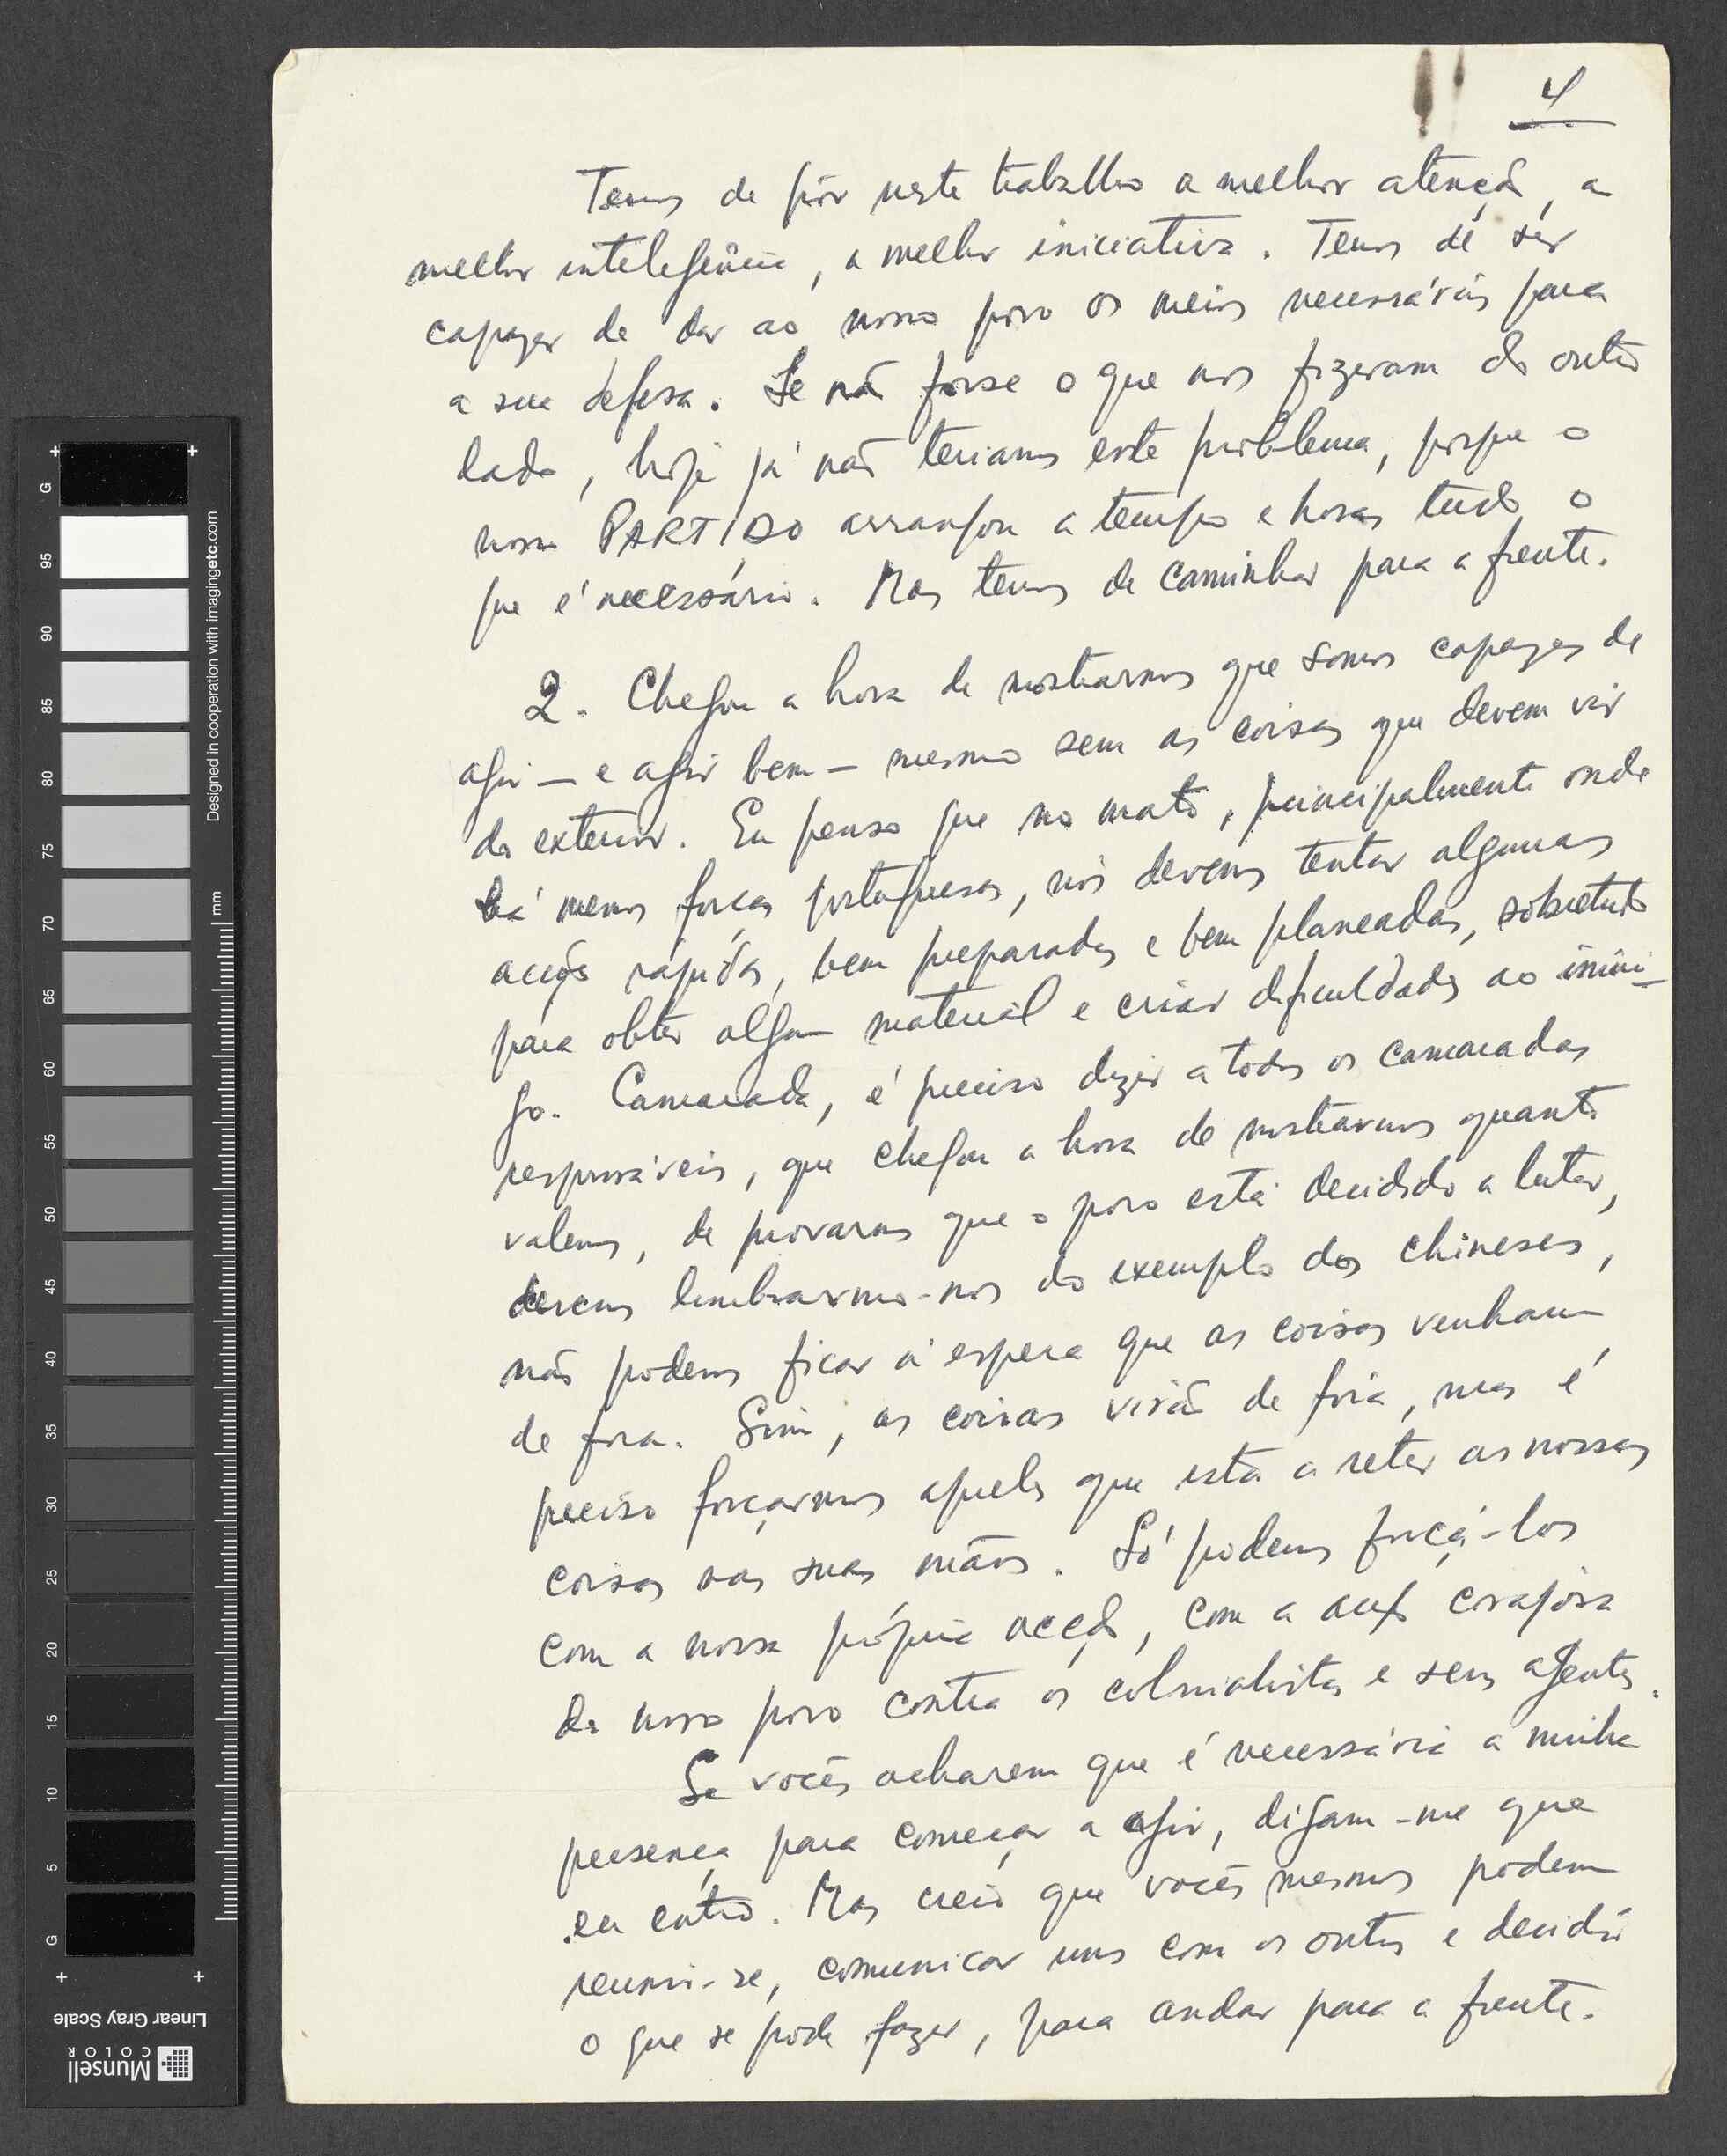 4
Temos de pôr neste trabalho a melhor atenção, a
melhor inteligência, a melhor iniciativa. Temos de ser
capazes de dar ao nosso povo os meios necessários para
a sua defesa. Se não fosse o que nos fizeram do outro
lado, hoje já não teríamos este problema, porque o
nosso PARTIDO arranjou a tempo e horas tudo o
que é necessário. Mas temos de caminhar para a frente.
2. Chegou a hora de mostrarmos que somos capazes de
agir — e agir bem — mesmo sem as coisas que devem vir
do exterior. Eu penso que no mato, principalmente onde
há menos forças portuguesas, nós devemos tentar algumas
acções rápidas, bem preparadas e bem planeadas, sobretudo
para obter algum material e criar dificuldades ao inimi-
go. Camarada, é preciso dizer a todos os camaradas
responsáveis, que chegou a hora de mostrarmos quanto
valemos, de provarmos que o povo está decidido a lutar,
devemos lembrarmo-nos do exemplo dos chineses,
não podemos ficar à espera que as coisas venham
de fora. Sim, as coisas virão de fora, mas é
preciso forçarmos aqueles que está a reter as nossas
coisas nas suas mãos. Só podemos forçá-los
com a nossa própria acção, com a acção corajosa
do nosso povo contra os colonialistas e seus agentes.
Se vocês acharem que é necessária a minha
presença para começar a agir, digam-me que
eu entro. Mas creio que vocês mesmos podem
reunir-se, comunicar uns com os outros e decidir
o que se pode fazer, para andar para a frente.
Designed in cooperation with imagingetc.com
mm
G
95
90
85
80
75
70
65
60
55
50
45
40
35
30
25
20
15
10
5
G
Linear Gray Scale
Munsell
COLOR